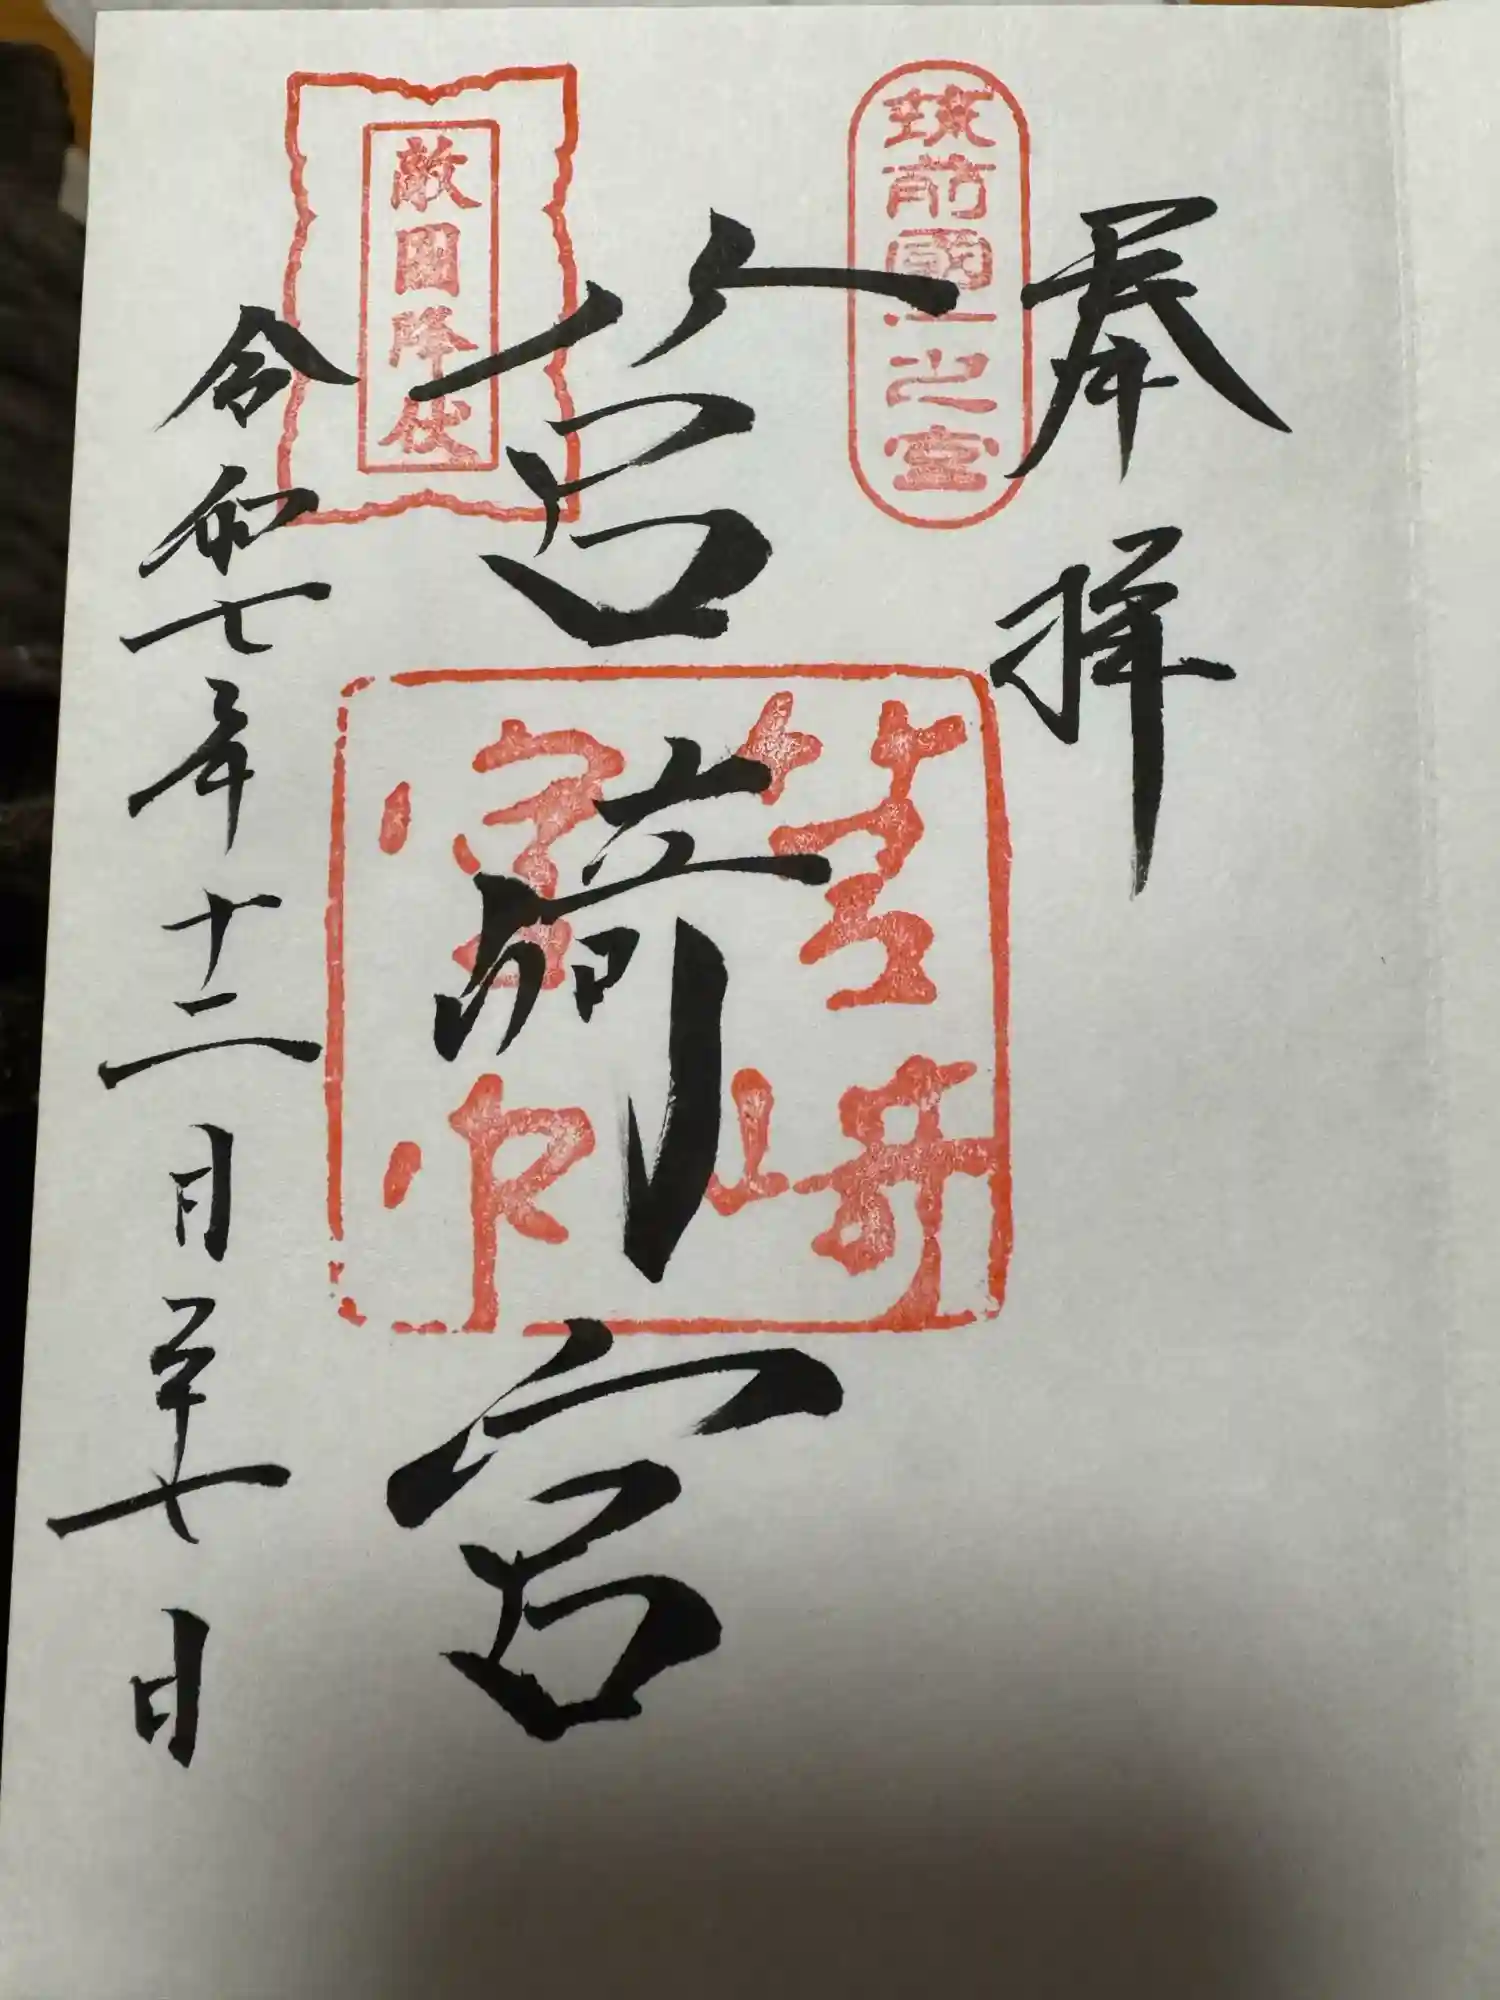 奉拝
筑前國一之宮
筥﨑宮
筥崎
宮印
敵國降伏
令和七年十二月二十七日